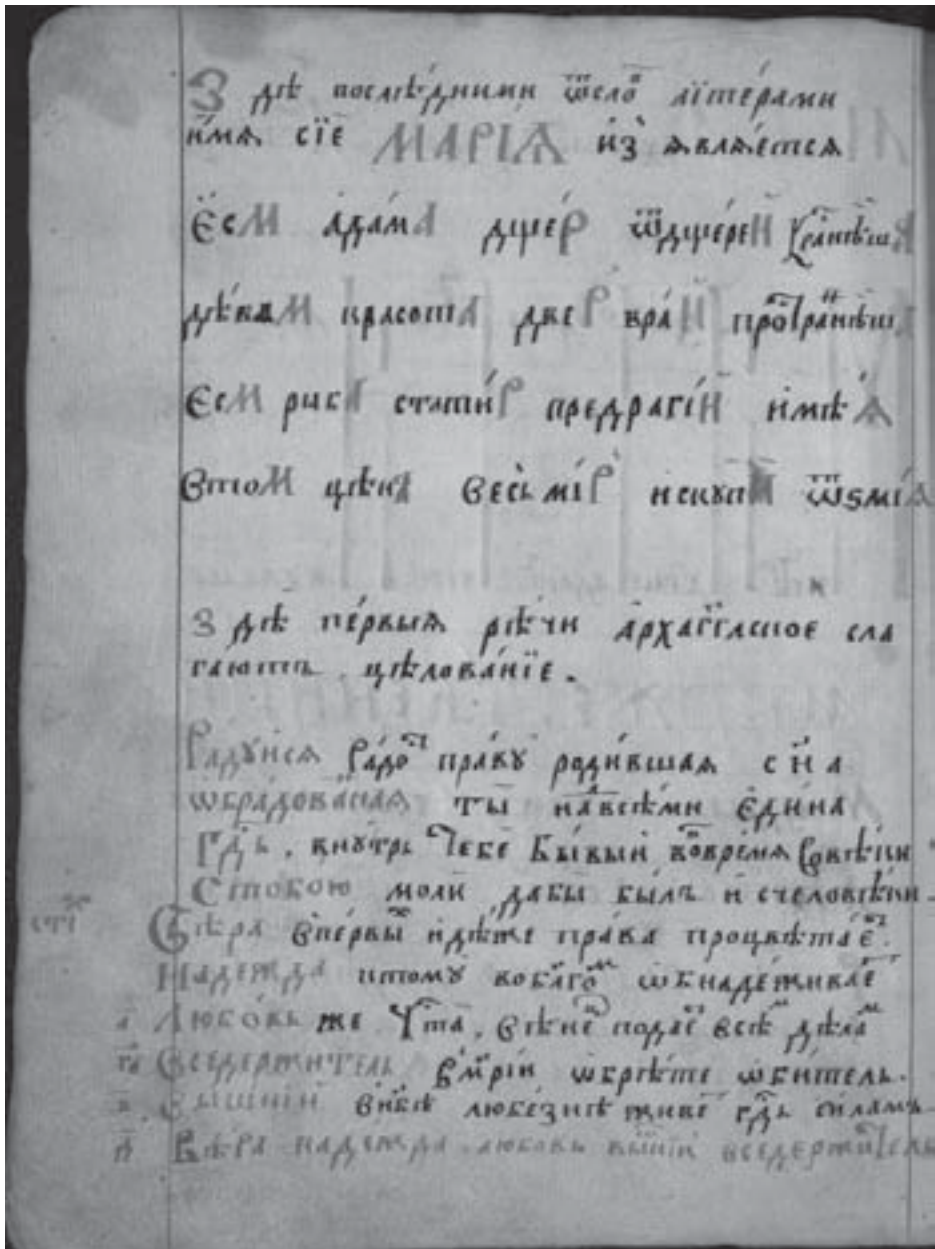 Здѣ послѣ́дними ѿсло̑ лїте́рами
и́мѧ сїе МАРІѦ из̾ ѧвлѧ́етсѧ
Єсм Ада́ма дще́р ѿдще́рей
дѣ́вам красота две́р вра́й
Єсм риба стати́р предрагі́й имѣ́ѧ
Втом цѣна весь мі́р искупи ѿѕмі́ѧ
Здѣ пе́рвыѧ рѣ́чи а́рхаг҃глское сла
гаютъ цѣлова́нїе.
Ра́дуйсѧ пра́ву роди́вшаѧ сн҃а
ѡбра́дованаѧ ты̀ над̾всѣ́ми єди́на
Гд҃ь, внꙋ́трь Тебе бы́вый
Стобою моли̂ дабы бы́лъ и счеловѣ́ки.
стї̑х Вѣра впе́рвы̑х идѣже пра́ва процвѣта́е̑т.
Надежда ктому ѡбнаде́живае̑т
а҃ Любо́вь же подае̑т всѣ̑м дѣла̑м
г҃ Вседержитель вмр҃і́и ѡбрѣ́те ѡби́тель.
Вы́шнїй внб҃ѣ любе́знѣ живе̑т гд҃ь си́ламъ.
Вѣ́ра наде́жда любовь вы́шнїй вседержи́тель